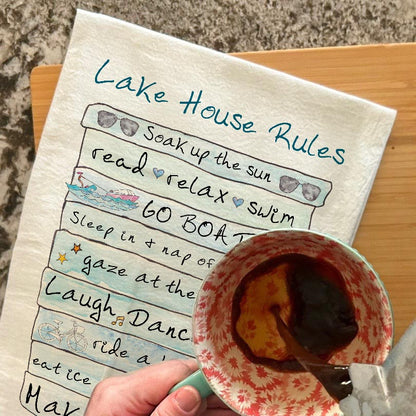 Lake House Rules
Soak up the sun
read relax swim
GO BOAT
Sleep in & nap of
gaze at the
Laugh Danc
ride a
eat ice
Mak